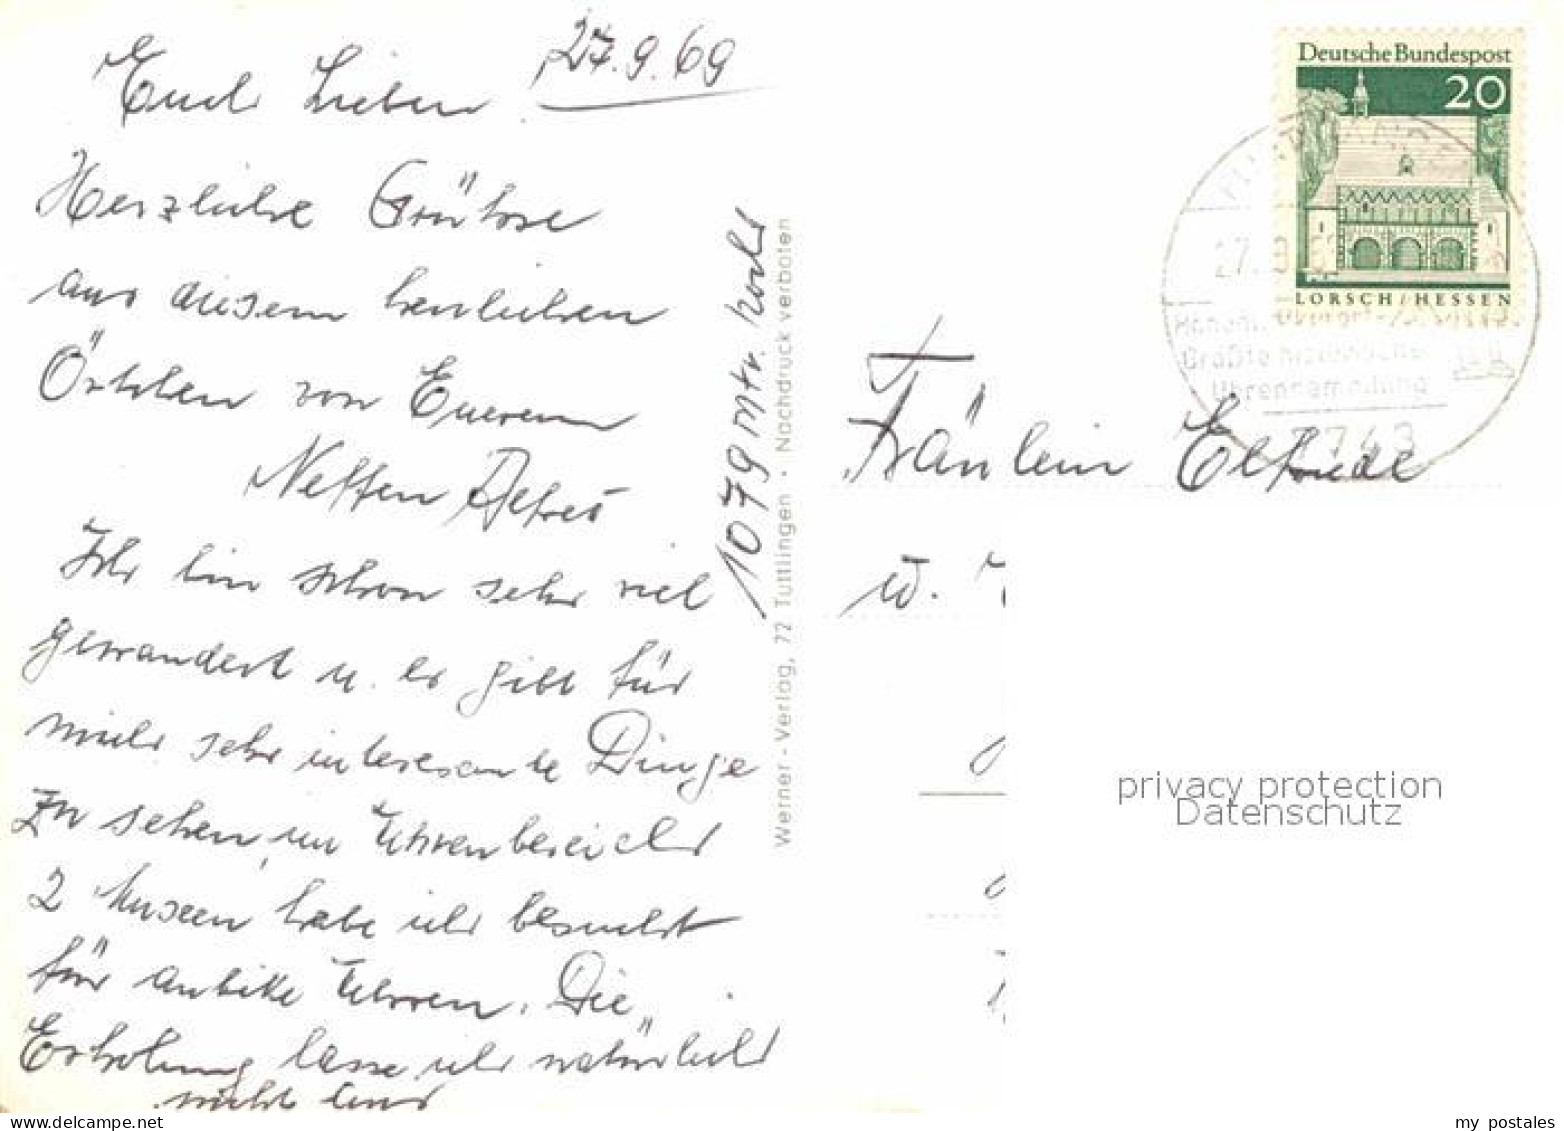 27.9.69
Euch Lieben
Herzliche Grüße
aus diesem herrlichen
Örtchen von Euerem
Neffen
Ich bin schon sehr viel
gewandert u. es gibt für
mich sehr interesante Dinge
zu sehen, im Uhrenbereich
2 Museen habe ich besucht
für antike Uhren. Die
Erholung lasse ich natürlich
nicht aus
1079 mtr. hoch
Werner - Verlag, 72 Tuttlingen · Nachdruck verboten
Deutsche Bundespost
20
LORSCH/HESSEN
27. 9. 69
Größte historische
Uhrensammlung
7743
Fräulein Elfriede
W.
privacy protection
Datenschutz
my postales